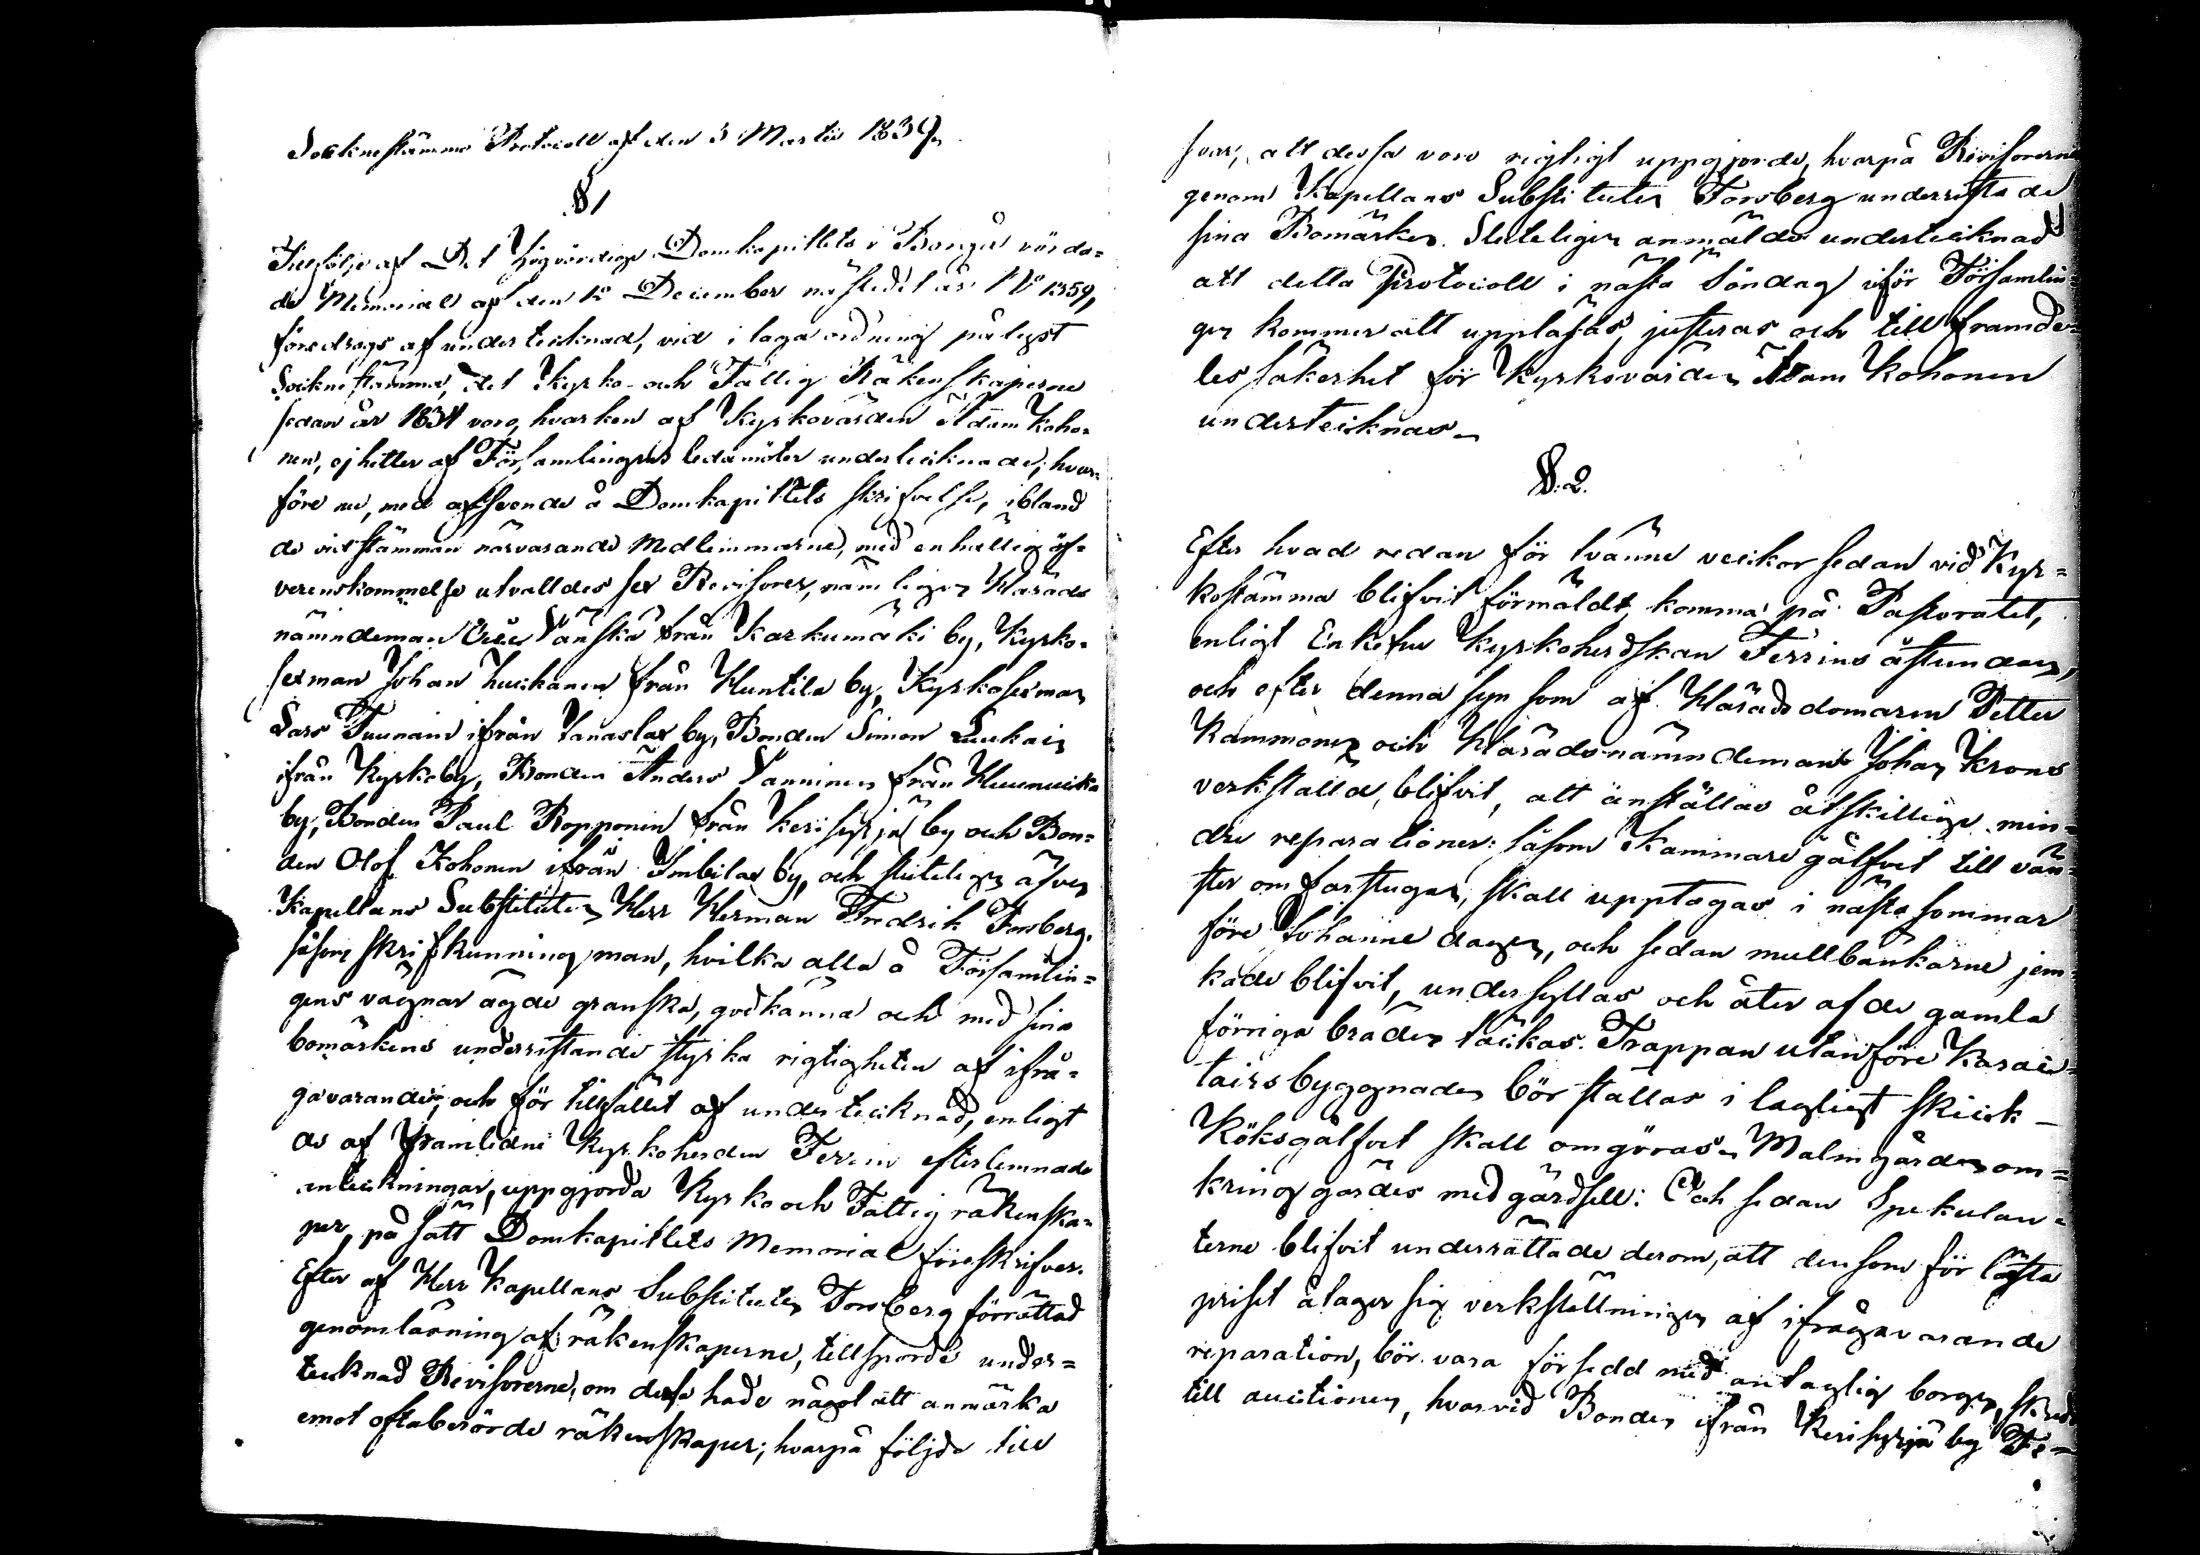 Socknestämmo Protocoll af den 3 Martii 1839.
§ 1
Till följe af Det Högvördige Domkapitlets i Borgå vörda-
de Memorial af den 12 December näst ledet år No 1359,
föredrogs af undertecknad, vid i laga ordning pålyst
Sockne stämma, det Kyrko- och Fattig Räkenskaperne
sedan år 1834 voro, hvarken af Kyrkovärden Adam Koho-
nen, ej heller af Församlingens ledamöter undertecknade; hvar-
före nu, med afseende å Domkapitlets skrifvelse, ibland
de vid stämman närvarande Medlemmarne, med enhällig öf-
verenskommelse utvalldes sex Revisorer, nämligen Härads
nämndeman Vänskä från Karkumäki by, Kyrko-
sexman Johan Huikanen från Huntila by, Kyrkosexman
Lars Tuunain ifrån Vanaslax by, Bonden Simon Luukain
ifrån Kyrkoby, Bonden Anders Vanninen från
by, Bonden Paul Ropponen från Kerisyrjä by och Bon-
den Olof Kohonen ifrån Imbilax by, och sluteligen äfven
Kapellans Substituten Herr Herman Fredrik Forsberg,
såsom skrifkunning man, hvilka alla å Församlin-
gens vägnar ägde granska, godkänna och med sina
bomärkens underristande styrka rigtigheten af ifrå-
gavarande, och för tillfället af undertecknad, enligt
de af framlidne Kyrkoherden Ferrin efterlemnade
anteckningar, uppgjorda Kyrko och Fattig räkenska-
per, på sätt Domkapitlets Memorial föreskrifver.
Efter af Herr Kapellans Substituten Forsberg förrättad
genomläsning af räkenskaperne, tillsporde under-
tecknad Revisorerne, om desse hade något att anmärka
emot oftaberörde räkenskaper; hvarpå följde till
svar, att dessa voro rigtigt uppgjorde, hvarpå Revisorerne
genom Kapellans Substituten Forsberg underristade
sina Bomärken. Sluteligen anmälde undertecknad
att detta Protocoll i nästa Söndag inför Församlin-
gen kommer att uppläsas, justeras och till framde-
les säkerhet för Kyrkovärden Adam Kohonen
undertecknas.
§. 2.
Efter hvad redan för tvänne veckor sedan vid Kyr-
kostämma blifvit förmäldt, komma på Pastoratet,
enligt Enkefru Kyrkoherdskan Ferrins åstundan,
och efter denna syn som af Häradsdomaren Petter
Kammonen och Häradsnämndeman Johan Krons
verkställd, blifvit, att anställas åtskillige min-
dre reparationer: såsom Kammare gålfvet till vän-
ster om farstugan, skall upptagas i nästa sommar
före Johanne dagen, och sedan mullbänkarne jem-
kade blifvit, undersyllas och åter af de gamla
förriga bräder täckas. Trappan utanföre Karac-
tairsbyggnaden bör ställas i lagligt skick –
Köksgålfvet skall omgöras. Malmgården om-
kring gärdes med gärdsell: Och sedan Spekulan-
terne blifvit underrättade derom, att den som för lägsta
priset åtager sig verkställningen af ifrågavarande
reparation, bör vara försedd med antaglig borgen, skreds
till auctionen, hvarvid Bonden ifrån Kerisyrjä by Fe-